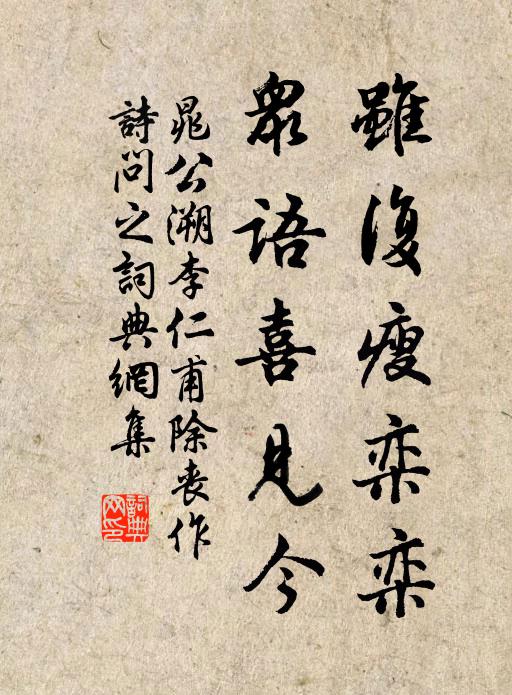 雖復瘦栾栾
衆語喜見今
晁公溯李仁甫除喪作
詩問之詞典網集
詞典网印